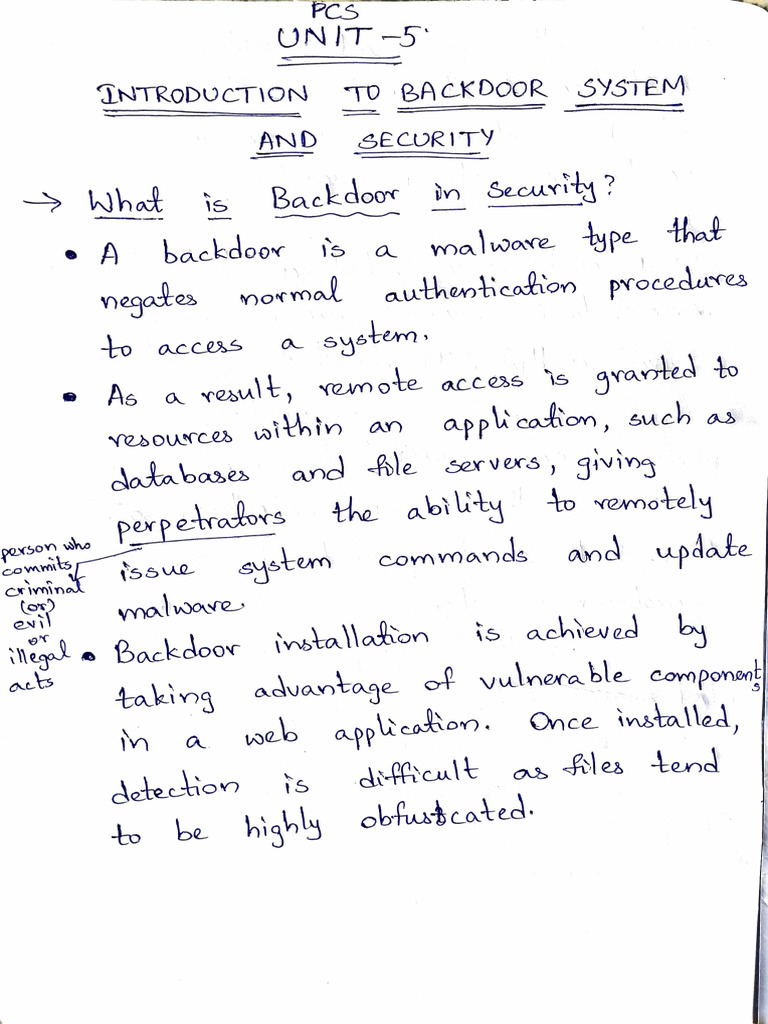 PCS
UNIT-5
INTRODUCTION TO BACKDOOR SYSTEM
AND SECURITY
→ What is Backdoor in Security?
• A backdoor is a malware type that
negates normal authentication procedures
to access a system.
• As a result, remote access is granted to
resources within an application, such as
databases and file servers, giving
perpetrators the ability to remotely
issue system commands and update
malware.
person who
commits
criminal
(or)
evil
or
illegal
acts
• Backdoor installation is achieved by
taking advantage of vulnerable components
in a web application. Once installed,
detection is difficult as files tend
to be highly obfuscated.